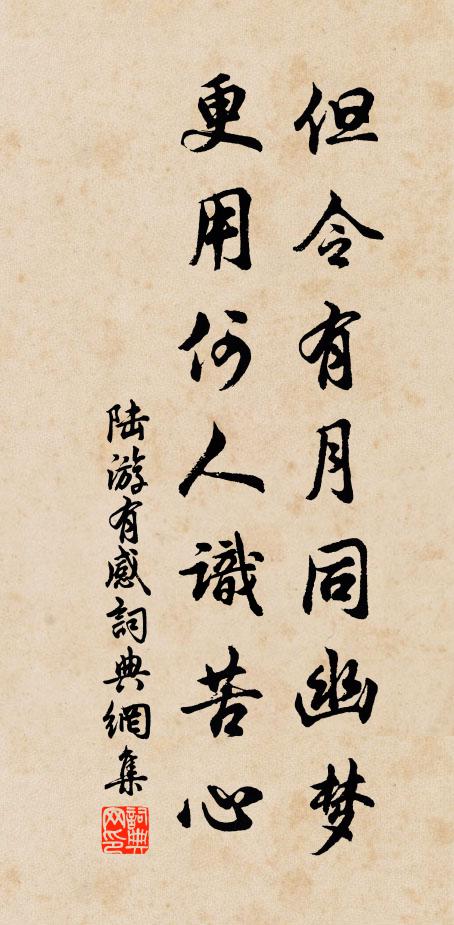 但令有月同幽梦
更用何人識苦心
陆游有感詞典網集
詞典网印